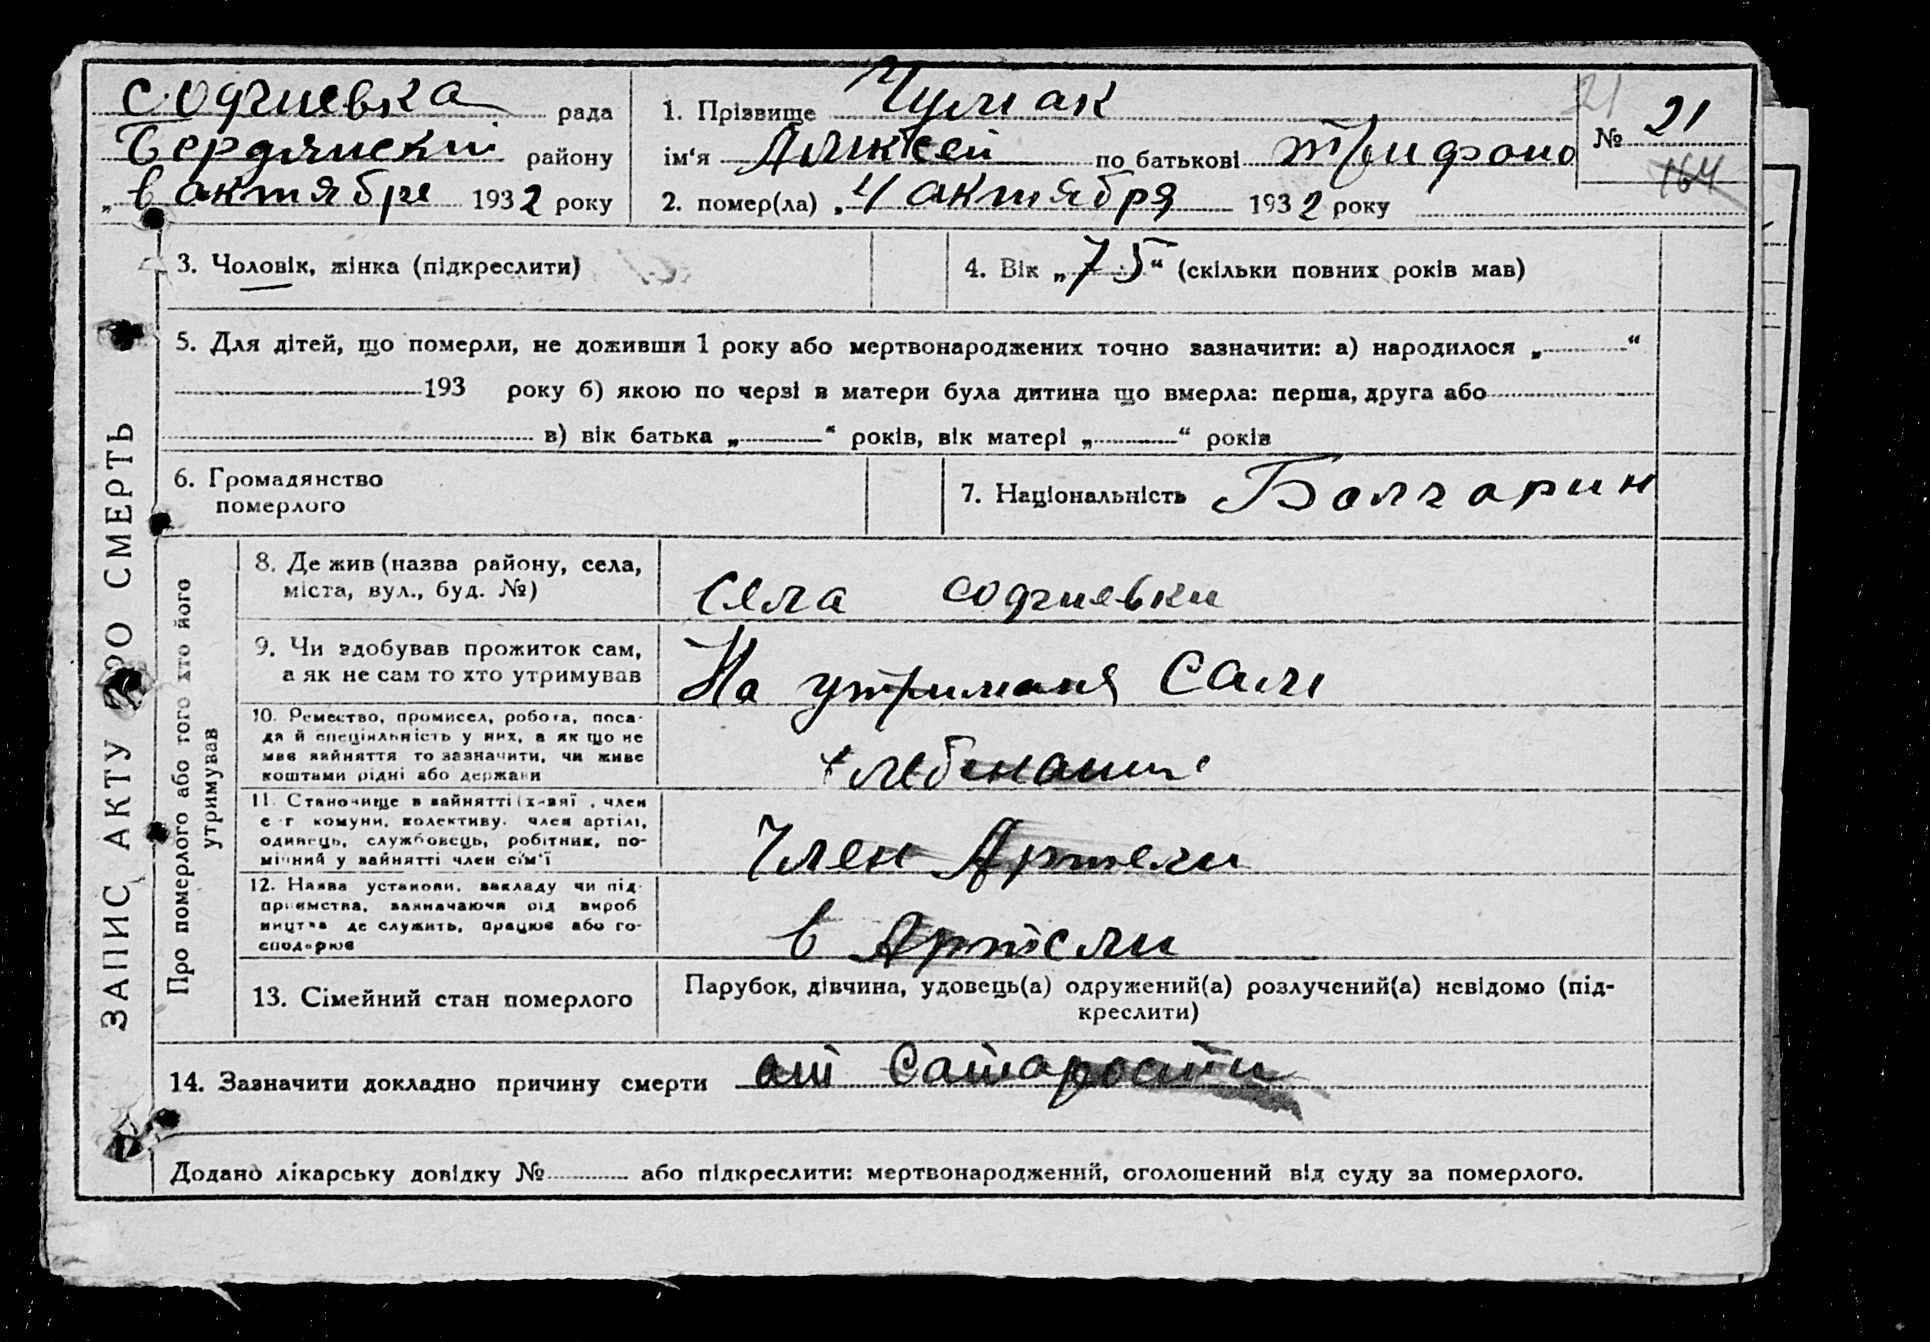 содгиевка рада
Бердянский району
„ 6 актября 1932 року
1. Прізвище Чумак
ім'я Алжксей по батькові Трифоно
2. помер(ла) „4 актября 1932 року
21
№ 21
164
3. Чоловік, жінка (підкреслити)
4. Вік „75“ (скільки повних років мав)
5. Для дітей, що померли, не доживши 1 року або мертвонароджених точно зазначити: а) народилося „ “
193 року б) якою по черзі в матери була дитина що вмерла: перша, друга або
в) вік батька „ “ років, вік матері „ “ років
6. Громадянство
померлого
7. Національність Болгарин
ЗАПИС АКТУ ПРО СМЕРТЬ
Про померлого або того хто його
утримував
8. Де жив (назва району, села,
міста, вул., буд. №)
села содгиевки
9. Чи здобував прожиток сам,
а як не сам то хто утримував
На утриманя Сам
10. Ремество, промисел, робота, поса-
да й спеціяльність у них, а як що не
має зайняття то зазначити, чи живе
коштами рідні або держави
11. Становище в зайнятті (хазяї , член
с-г комуни, колективу, член артілі,
одинець, службовець, робітник, по-
мічний у зайнятті член сім'ї
Член Артели
12. Назва установи, закладу чи під-
приємства, зазначаючи рід вироб
ництва де служить, працює або го-
сподарює
в Артели
13. Сімейний стан померлого
Парубок, дівчина, удовець(а) одружений(а) розлучений(а) невідомо (під-
креслити)
14. Зазначити докладно причину смерти ат Сатарости
Додано лікарську довідку № або підкреслити: мертвонароджений, оголошений від суду за померлого.